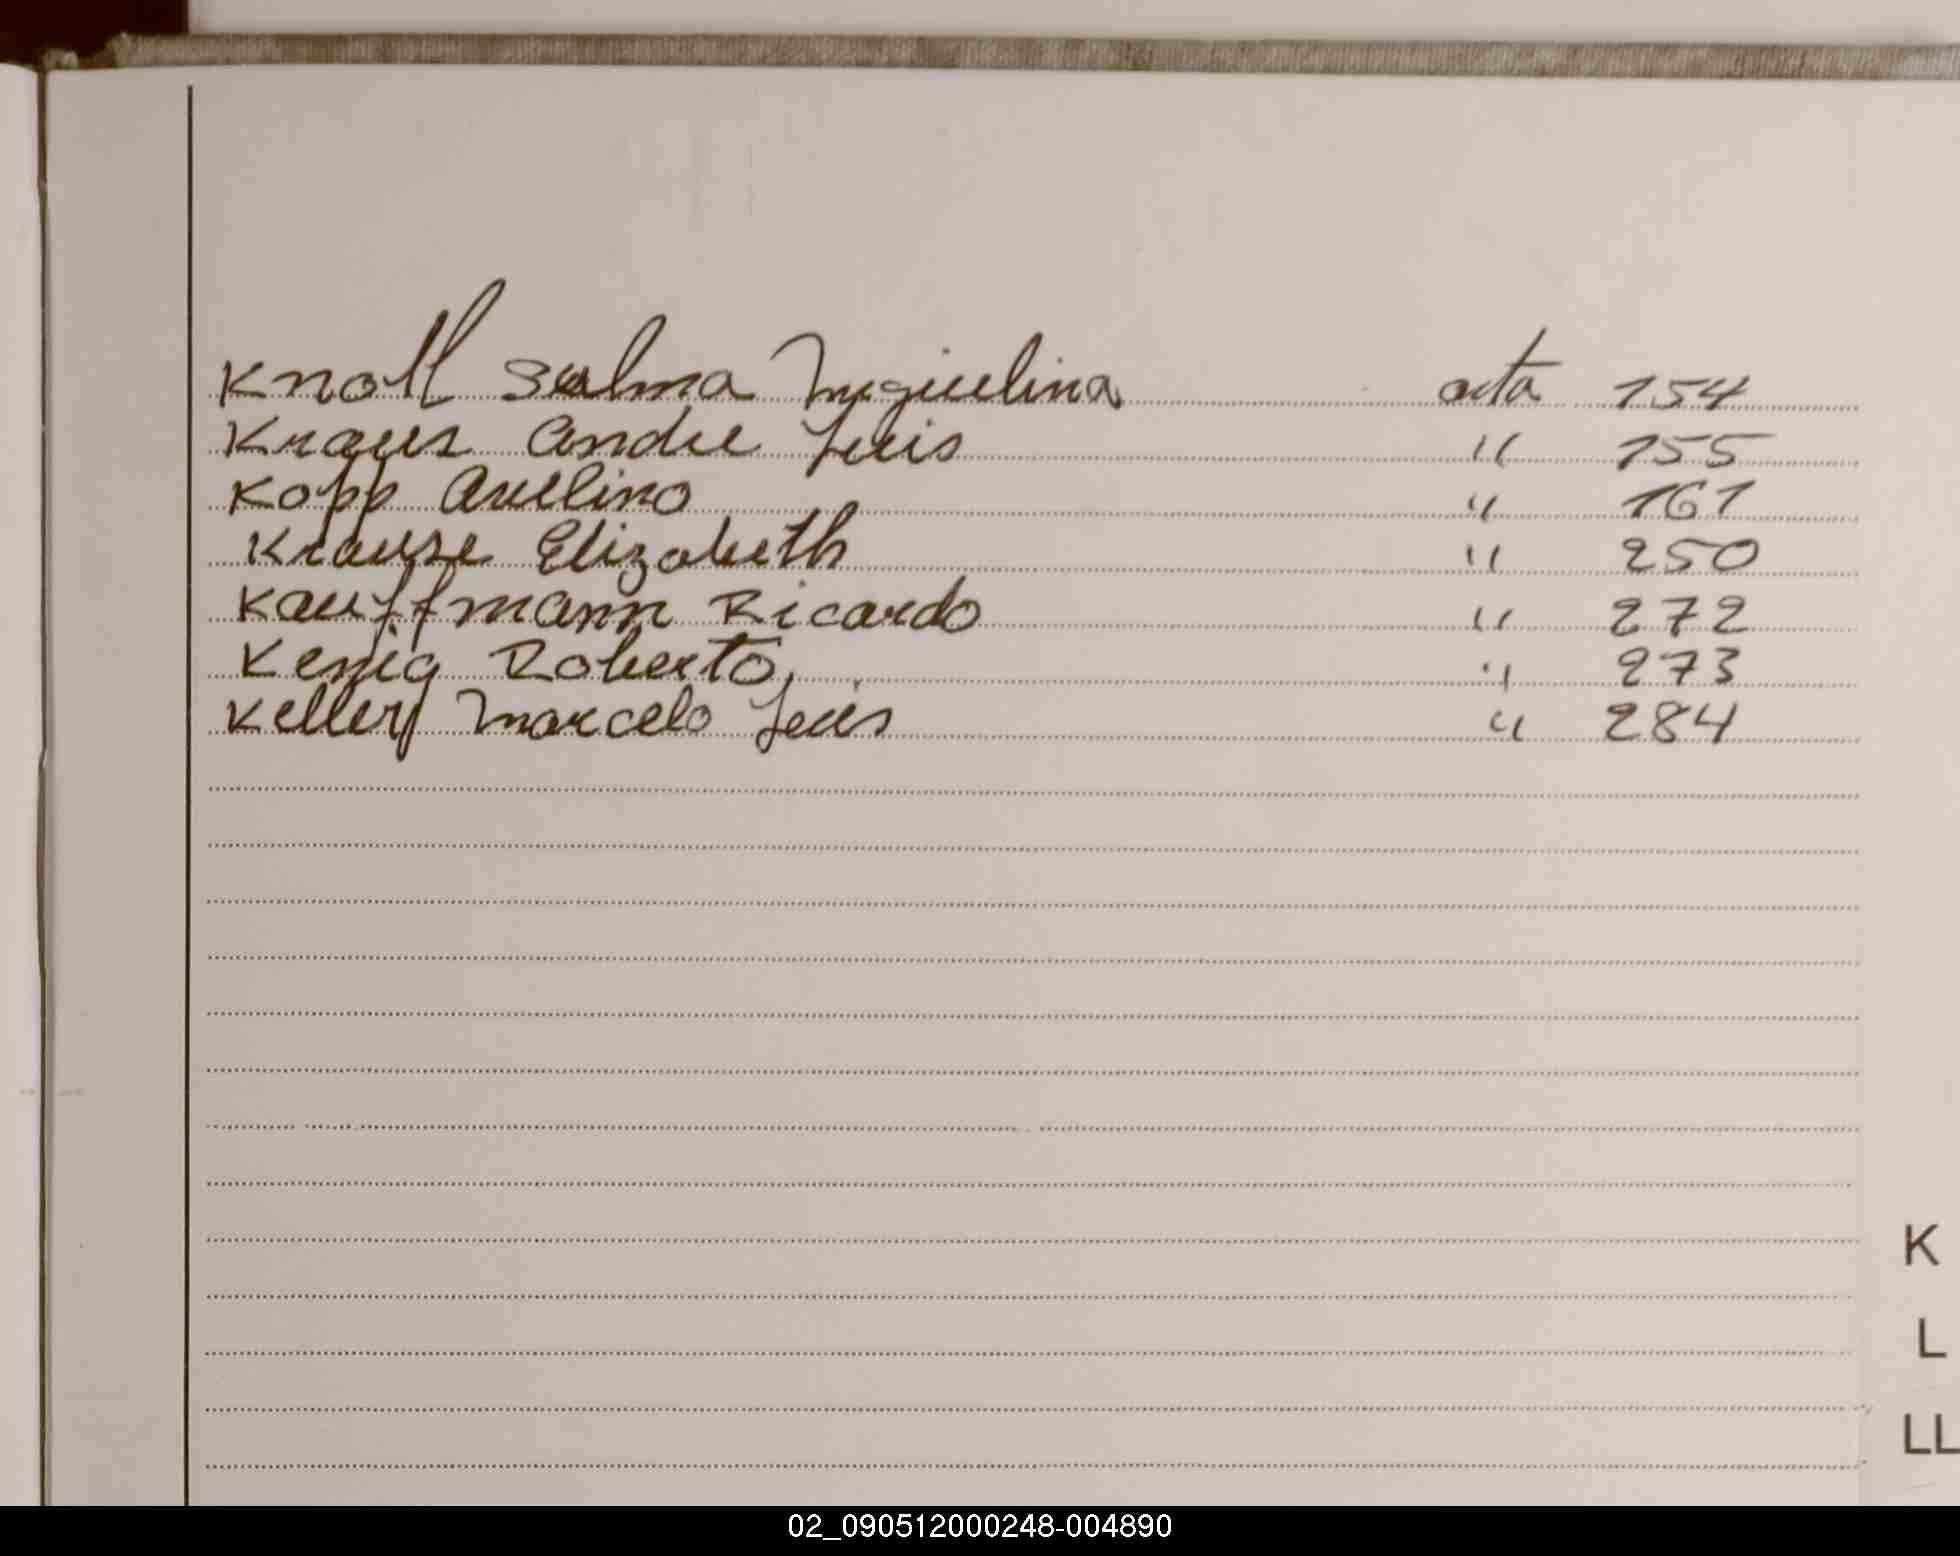 Knoll Selma Miguelina acta 154
Kraus Andre Luis " 155
Kopp Avelino " 161
Krause Elizabeth " 250
Kauffmann Ricardo " 272
Kenig Roberto " 273
Keller Marcelo Luis " 284
K
L
LL
02_090512000248-004890